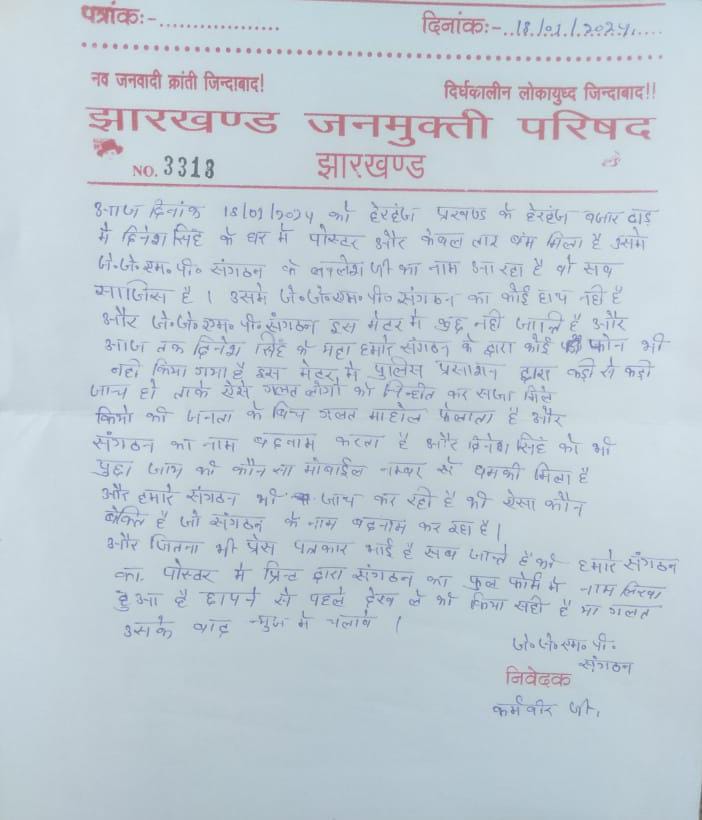 पत्रांकः-..................
दिनांकः-..18/01/2024.....
नव जनवादी क्रांती जिन्दाबाद!
दिर्घकालीन लोकायुध्द जिन्दाबाद!!
झारखण्ड जनमुक्ती परिषद
NO. 3318 झारखण्ड
आज दिनांक 18/01/2024 को हेरहंज प्रखण्ड के हेरहंज बजार टाड़
मे दिनेश सिंह के घर मे पोस्टर और केवल तार बंम मिला है उसमे
जे॰जे॰एम॰पी॰ संगठन के जी का नाम आ रहा है वो सब
साजिस है। उसमे जे॰जे॰एम॰पी॰ संगठन का कोई हाथ नही है
और जे॰जे॰एम॰पी॰ संगठन इस मेटर मे कुछ नही जान्ते है और
आज तक दिनेश सिंह के यहा हमारे संगठन के द्वारा कोई फोन भी
नही किया गया है इस मेटर मे पुलिस प्रसाशन द्वारा कड़ी से कड़ी
जाच हो ताके ऐसे गलत लोगो को चिन्हीत कर सजा मिले
कियो की जनता के बिच गलत माहोल फेलाता है और
संगठन का नाम बदनाम करता है और दिनेश सिंह को भी
पुछा जाय की कौन सा मोबाईल नम्बर से धमकी मिला है
और हमारे संगठन भी जाच कर रही है की ऐसा कौन
बेक्ति है जो संगठन के नाम बदनाम कर रहा है।
और जितना भी प्रेस पत्रकार भाई है सब जान्ते है की हमारे संगठन
का पोस्टर मे प्रिन्ट द्वारा संगठन का फुल फोर्म मे नाम लिखा
हुआ है छापने से पहले देख ले की किया सही है या गलत
उसके बाद न्युज मे चलावे।
जे॰जे॰एम॰पी॰
संगठन
निवेदक
कर्मवीर जी।